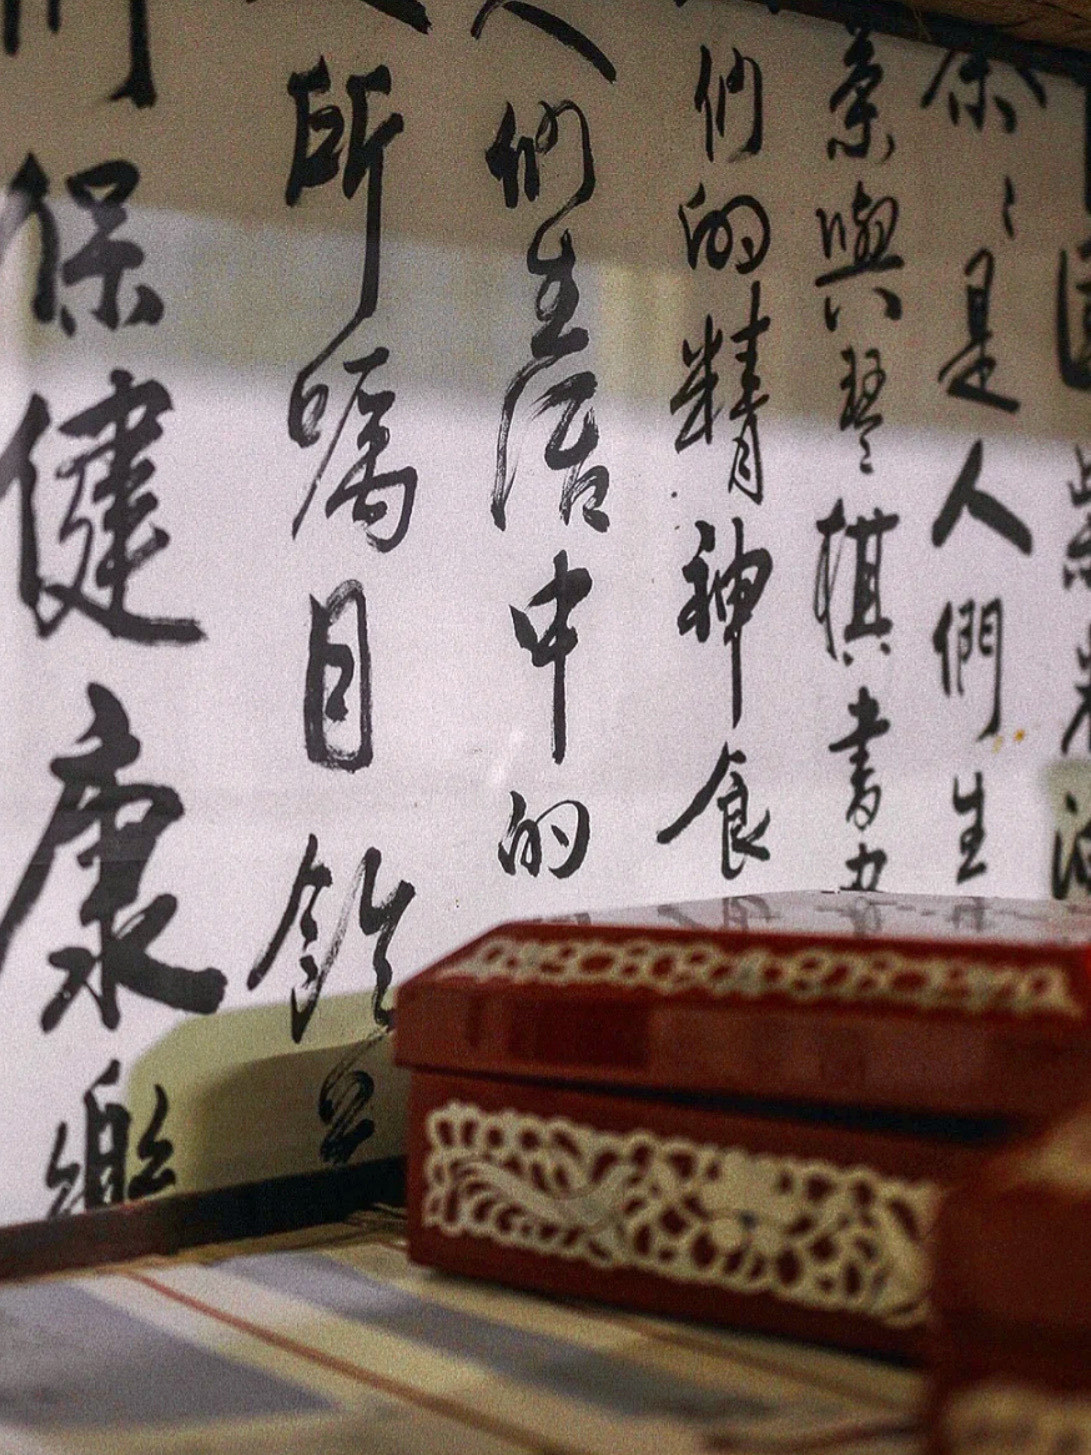 茶是人們生
茶與琴棋書
們的精神食
人們生活中的
所囑目飲
們保健康樂